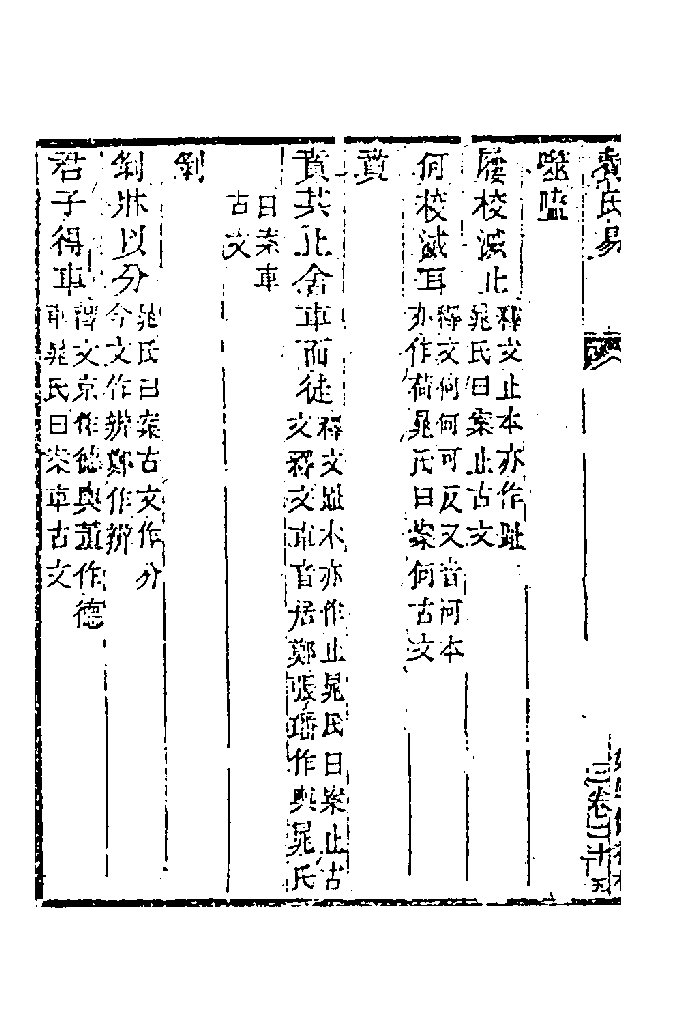 費氏易
卷二十五
噬嗑
屨校滅止釋文止本亦作趾
晁氏曰案止古文
何校滅耳釋文何何可反又音河本
亦作荷晁氏曰案何古文
賁
賁其止舍車而徒釋文趾本亦作止晁氏曰案止古
文釋文車音居鄭張璠作輿晁氏
曰案車
古文
剝
剝牀以分晁氏曰案古文作分
今文作辨鄭作辨
君子得車釋文京作德輿董作德
車晁氏曰案車古文